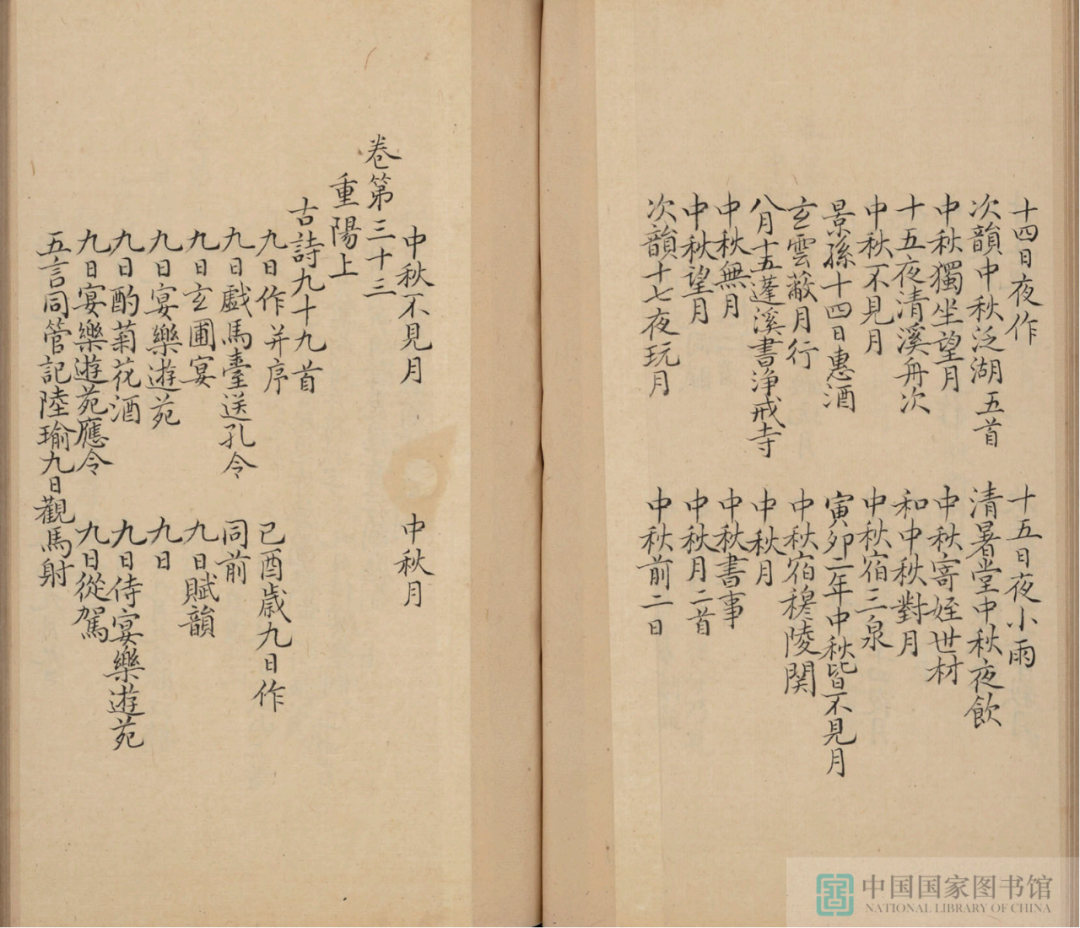 十四日夜作　十五日夜小雨
次韻中秋泛湖五首　清暑堂中秋夜飲
中秋獨坐望月　中秋寄姪世材
十五夜清溪舟次　和中秋對月
中秋不見月　中秋宿三泉
景孫十四日惠酒　寅卯二年中秋皆不見月
玄雲蔽月行　中秋宿穆陵関
八月十五蓬溪書淨戒寺　中秋月
中秋無月　中秋書事
中秋望月　中秋月二首
次韻十七夜玩月　中秋前二日
中秋不見月　中秋月
卷第三十三
重陽上
古詩九十九首
九日作并序　己酉歲九日作
九日戲馬臺送孔令　同前
九日玄圃宴　九日賦韻
九日宴樂遊苑　九日
九日酌菊花酒　九日侍宴樂遊苑
九日宴樂遊苑應令　九日從駕
五言同管記陸瑜九日觀馬射
中国国家图书馆
NATIONAL LIBRARY OF CHINA